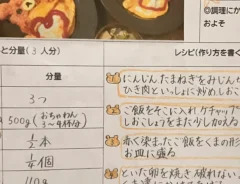 ◎調理にか
およそ
と分量(3人分)
レシピ(作り方を書く
分量
にんじん たまねぎをみじん
ひき肉といっしょに炒めしお
3つ
ご飯をそこに入れ ケチャップ
しおこしょうをまた少し加える
500g(おちゃわん
3〜4杯分)
1/2本
赤く染まったご飯をくまの形
お皿に盛る
1/4個
といた卵を焼き破れない
110g